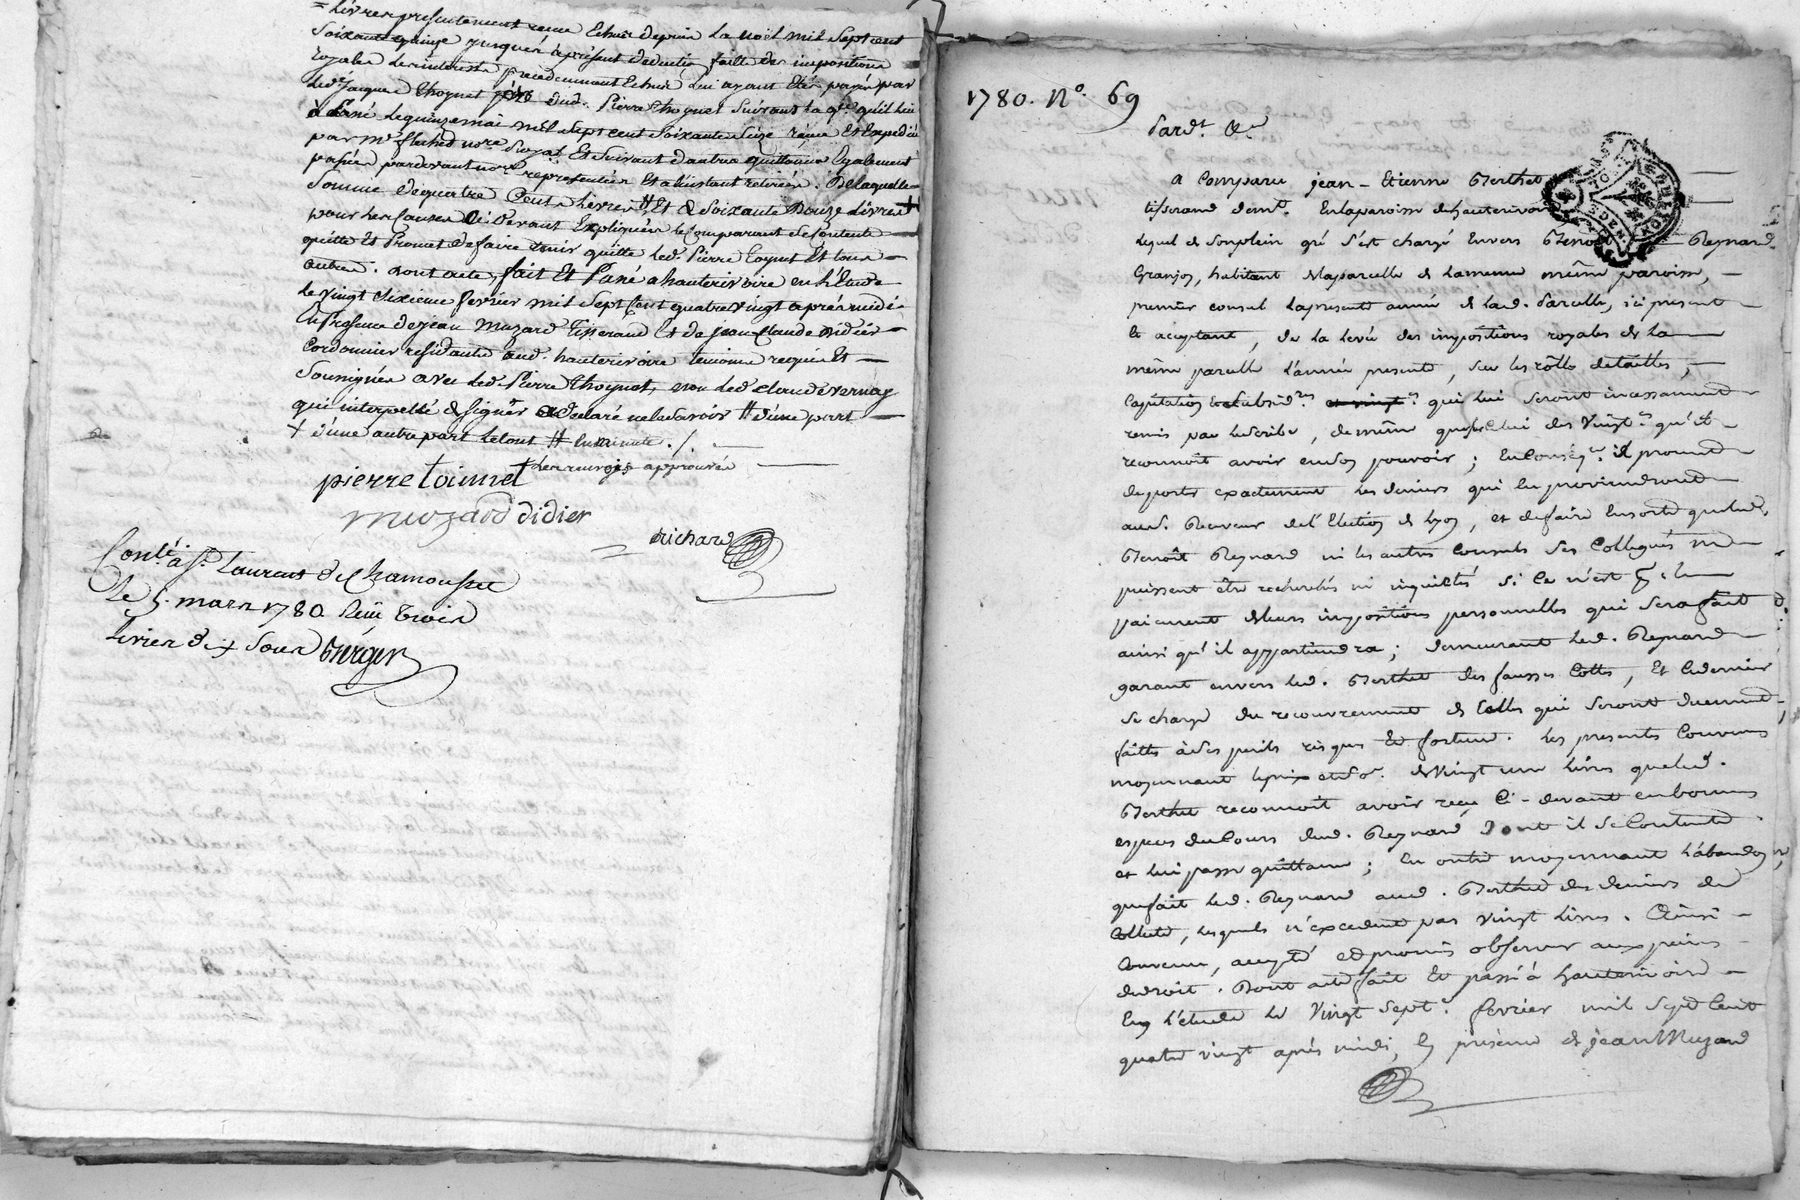 = Livres presentement reçue Echuë depuis La noël mil Sept cent
Soixante quinze jusques à présent deduction faitte des impositions
royales Les interests precedemment Echus Lui ayant Etés payés par
led. jacques thoynet père dud. Pierre thoynet Suivant la q.ce qu'il lui
à Passé le quinze mai mil Sept cent Soixante Seize reçue Et Expediée
par m.e no.re royal Et Suivant d'autres quittances Egalement
passées pardevant no.re representées Et a l'instant retirées. De laquelle
Somme de quatre Cent Livres # Et & Soixante Douze Livres +
pour les Causes Ci Devant Expliquées le Comparant Se Contente
quitte Et Promet de faire tenir quitte led. Pierre toynet Et tous
autres. dont acte, fait Et Passé a hauterivoire en l'Etude
le vingt Sixieme fevrier mil Sept Cent quatre vingt après midi
En Presence de jean muzard tisserand Et de jean Claude didier
Cordonnier residants aud. hauterivoire temoins requis Et
Soussignés avec led. Pierre thoynet, non led. claude vernay
qui interpellé de signer a declaré ne le Savoir # d'une part
+ d'une autre part Le tout # En minute ./.
Les renvois approuvés
pierre toinnet
muzard didier
richard
Con.lé à S.t Laurent de Chamousset
Le 5. mars 1780 Reçu trois
Livres dix Sous Berger
1780. N.o 69
Pard.t &.a
A Comparu jean - Etienne Berthet
tisserand dem.t. En la paroisse de hauterivoire
Lequel de son plein gré S'est chargé Envers Benoit Reynard
Granjon, habitant de la parcelle de la meme paroisse,
premier consul la presente année de lad. Parcelle, ici present
Et acceptant, de la levée des impositions royales de la
même parcelle L'année presente, Sur les rôlles de tailles,
Capitation Et Subsid.res et vingt.s qui lui Seront incessament
remis par , de même que celui des Vingt.s qu'il
reconnoit avoir en Son pouvoir; En Conséq.ce il promet
de porter exactement les deniers qui En proviendront
aud. Receveur de l'Election de Lyon, et de faire En sorte que led.
Benoît Reynard ni les autres Consuls Ses Collegues ne
puissent être recherchés ni inquiétés Si Ce n'est p.r le
paiement de leurs impositions personnelles qui Sera fait
ainsi qu'il appartiendra; demeurant led. Reynard
garant envers led. Berthet des fausses Cottes, Et Ce dernier
Se charge du recouvrement de Celles qui Seront duement
faittes à Ses perils risques Et fortune. Les presentes Convenues
moyennant le prix et So.e de Vingt une Livres que led.
Berthet reconnoit avoir reçu Ci - devant en bonnes
especes du Cours dud. Reynard Dont il Se Contente
et lui passe quittance; En outre moyennant l'abandon
que fait led. Reynard aud. Berthet des deniers de
Collecte, lesquels n'excedent pas vingt Livres. Ainsi
Convenu, accepté et promis observer aux peines
de droit. Dont acte fait Et passé à hauterivoire
En l'étude Le Vingt Sept.e fevrier mil Sept Cent
quatre vingt après midi, En presence de jean Muzard